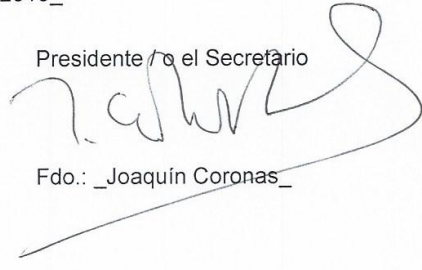 Presidente / o el Secretario
Fdo.: _Joaquín Coronas_